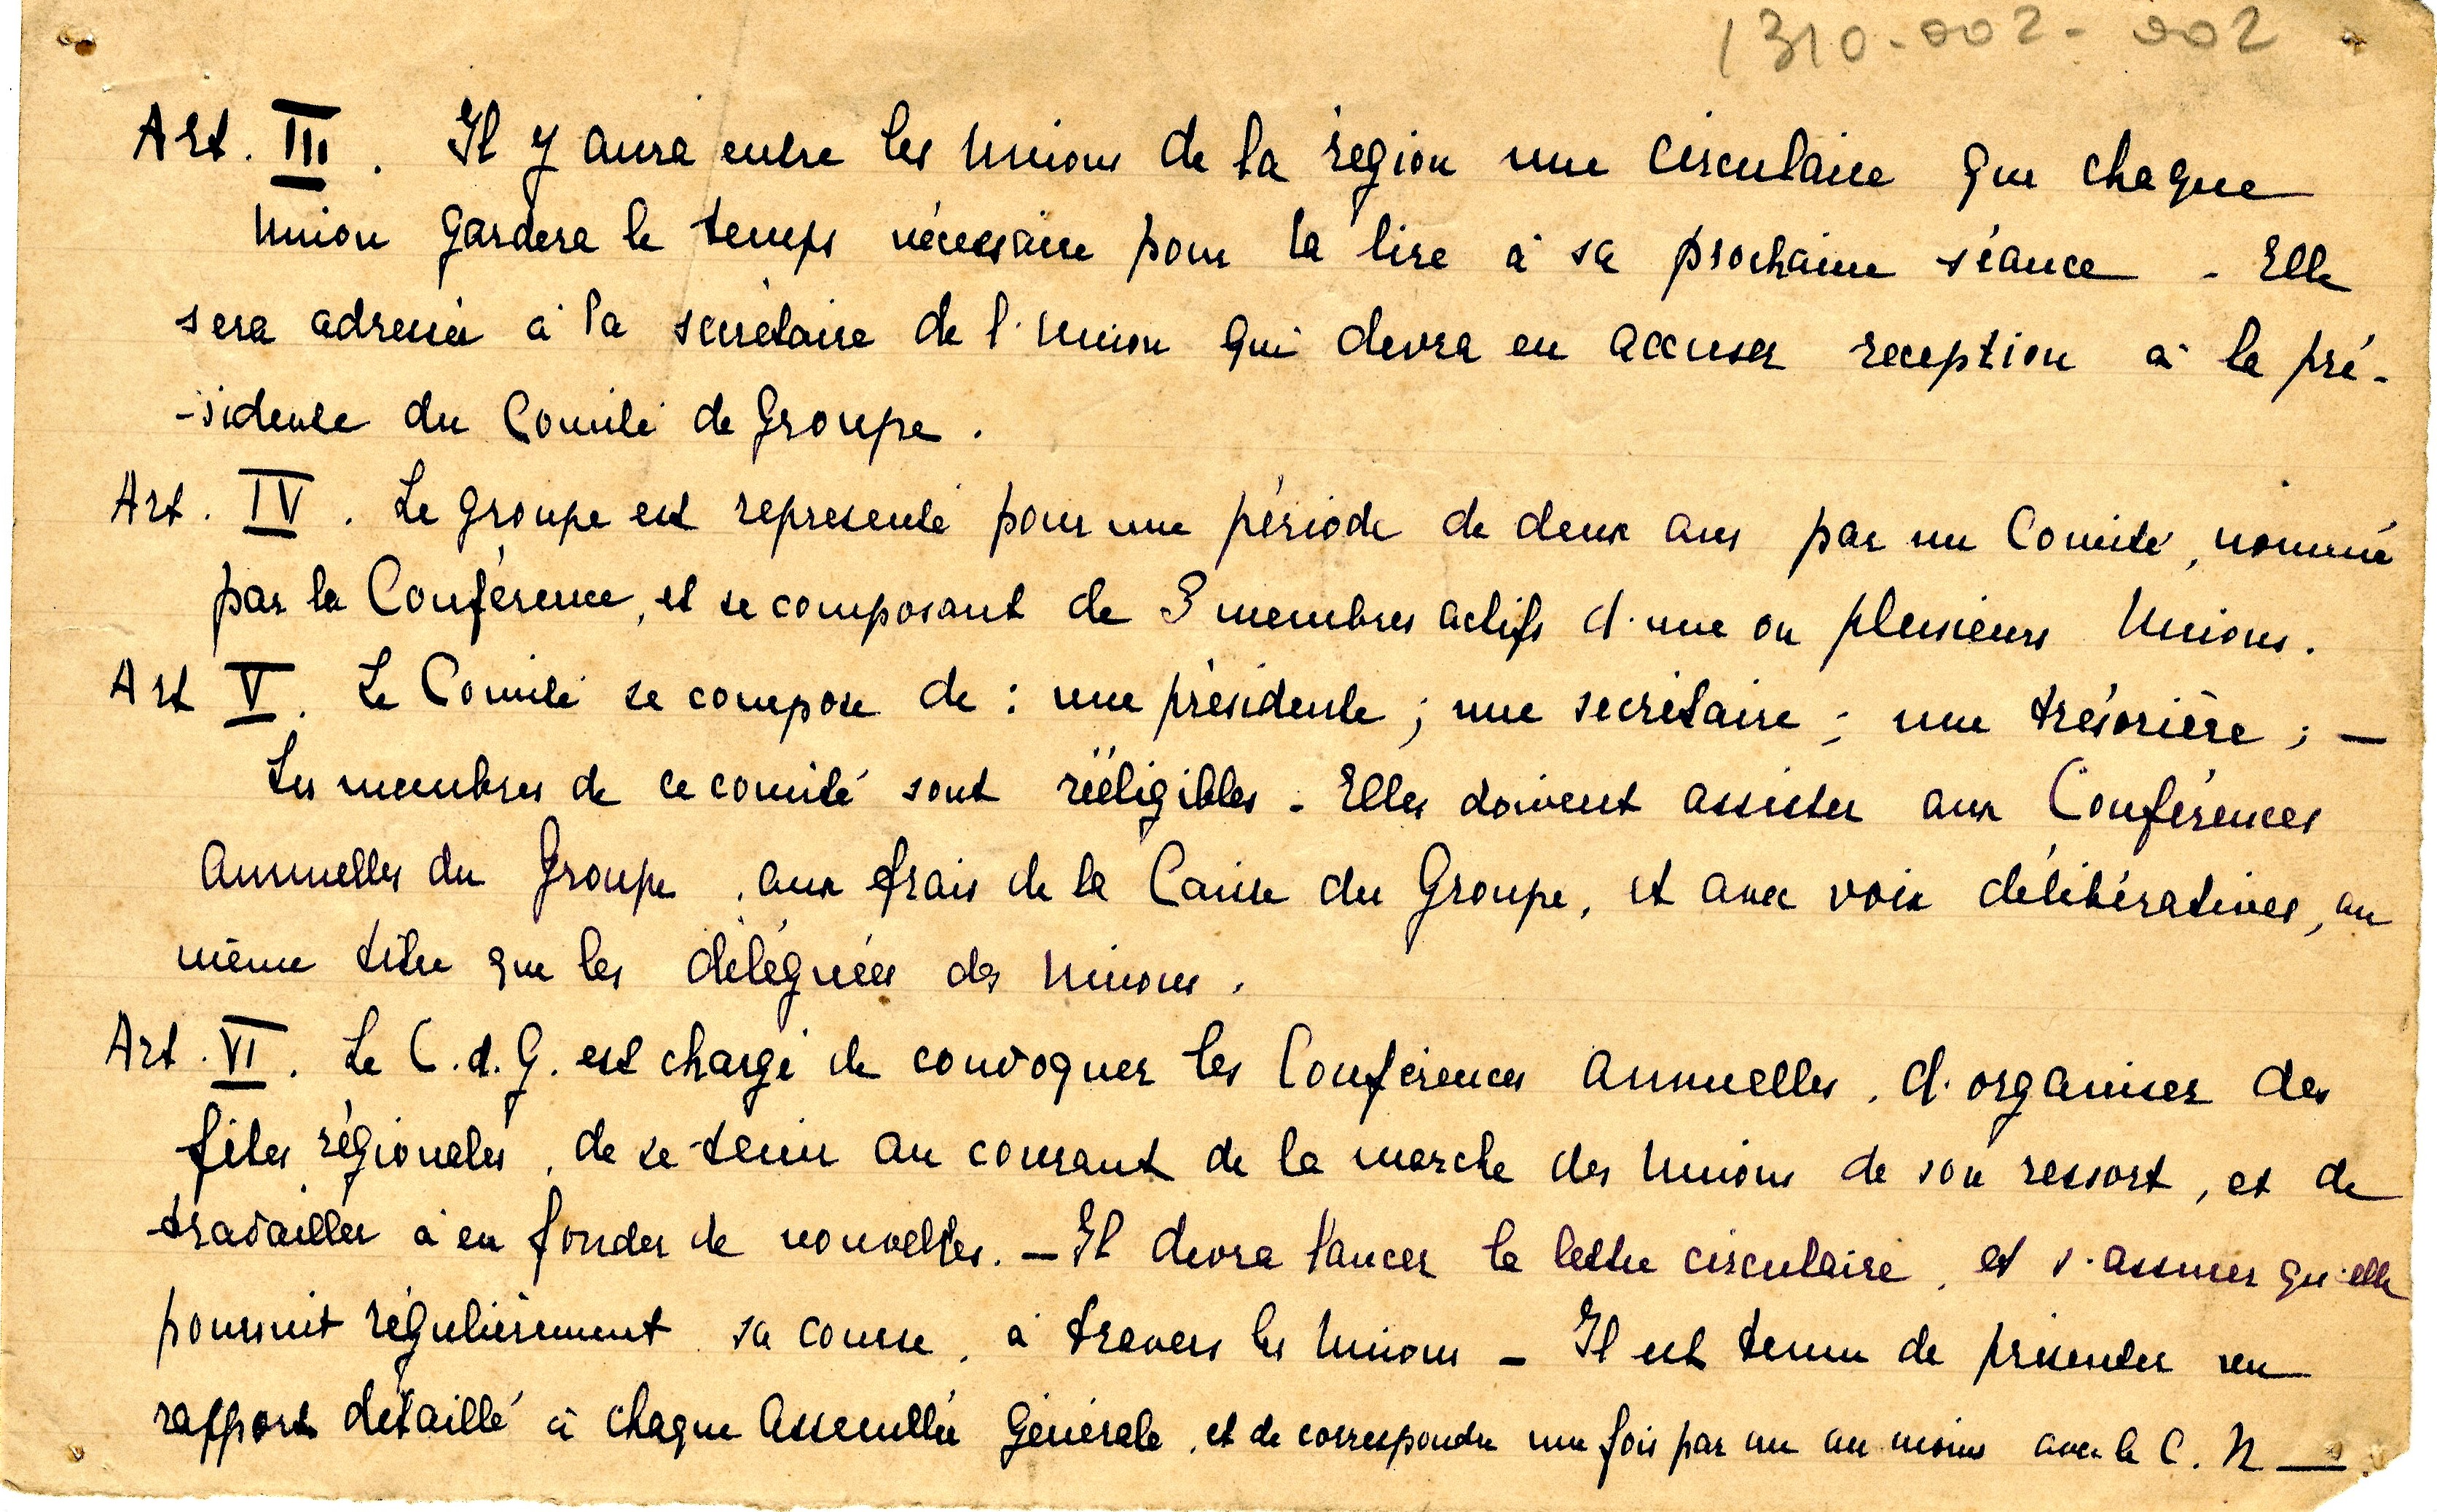 1310-002-002
Art. III. Il y aura entre les Unions de la région une circulaire que chaque
Union gardera le temps nécessaire pour la lire à sa prochaine séance - Elle
sera adressée à la secrétaire de l'Union qui devra en accuser reception à la pré-
-sidente du Comité de Groupe.
Art. IV. Le groupe est representé pour une période de deux ans par un Comité, nommé
par la Conférence, et se composant de 3 membres actifs d'une ou plusieurs Unions.
Art V. Le Comité se compose de : une présidente ; une secrétaire ; une trésorière ; —
Les membres de ce comité sont rééligibles - Elles doivent assister aux Conférences
Annuelles du Groupe, aux frais de la Caisse du Groupe, et avec voix délibératives, au
même titre que les déléguées des Unions.
Art. VI. Le C.d.G. est chargé de convoquer les Conférences Annuelles, d'organiser des
fêtes régionales, de se tenir au courant de la marche des Unions de son ressort, et de
travailler à en fonder de nouvelles. — Il devra lancer la lettre circulaire, et s'assurer qu'elle
poursuit régulièrement sa course, à travers les Unions - Il est tenu de présenter un
rapport détaillé à chaque Assemblée Générale, et de correspondre une fois par an au moins avec le C. N —